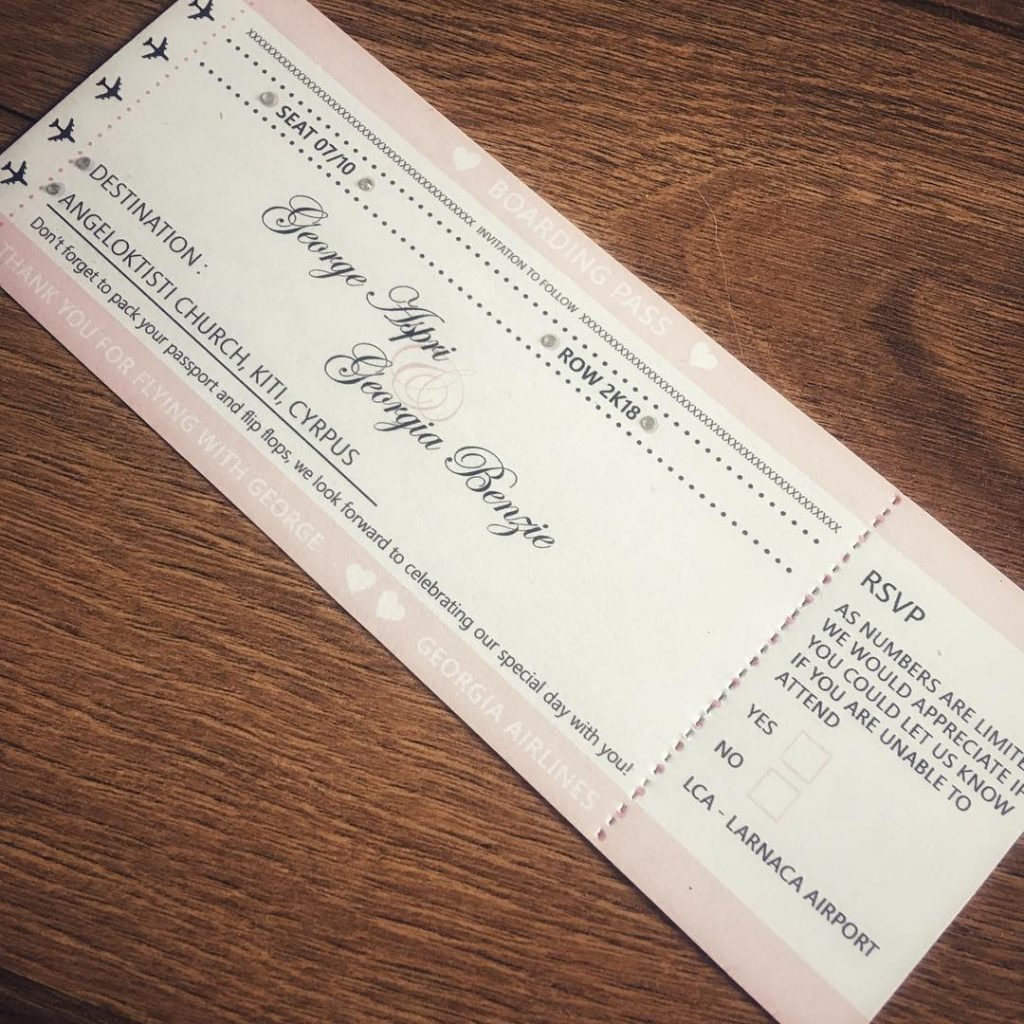 BOARDING PASS
xxxxxxxxxxxxxxxxxxxxxxxxxxxxxxxxxxxxxxxx INVITATION TO FOLLOW xxxxxxxxxxxxxxxxxxxxxxxxxxxxxxxxxxxxxxxx
SEAT 07/10
ROW 2K18
George Aspri
&
Georgia Benzie
DESTINATION:
ANGELOKTISTI CHURCH, KITI, CYRPUS
Don't forget to pack your passport and flip flops, we look forward to celebrating our special day with you!
THANK YOU FOR FLYING WITH GEORGE
GEORGIA AIRLINES
RSVP
AS NUMBERS ARE LIMITE
WE WOULD APPRECIATE IF
YOU COULD LET US KNOW
IF YOU ARE UNABLE TO
ATTEND
YES
NO
LCA - LARNACA AIRPORT